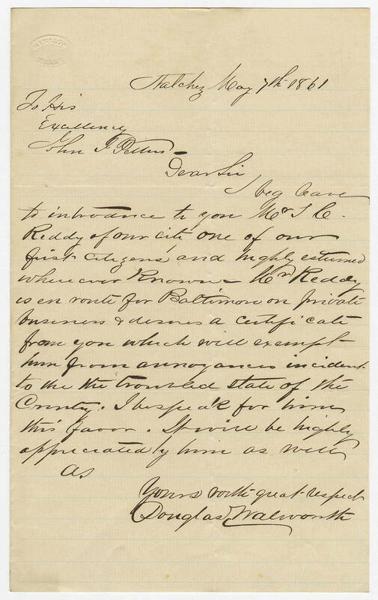 Natchez May 7th 1861
To His
Excellency
John J Pettus
Dear Sir
I beg leave
to introduce to you Mr J C.
Reddy of our city one of our
first citizens and highly esteemed
wherever known. Mr Reddy
is en route for Baltimore on private
business & desires a certificate
from you which will exempt
him from annoyances incident
to the the troubled state of the
Country. I bespeak for him
this favor. It will be highly
appreciated by him as well
as
Yours with great respect
Douglas Walworth